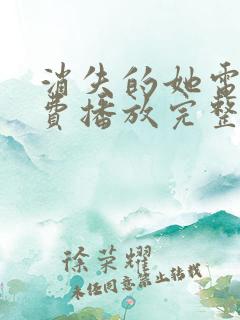 消失的她电
费播放完整
徐荣耀
未经同意禁止转载